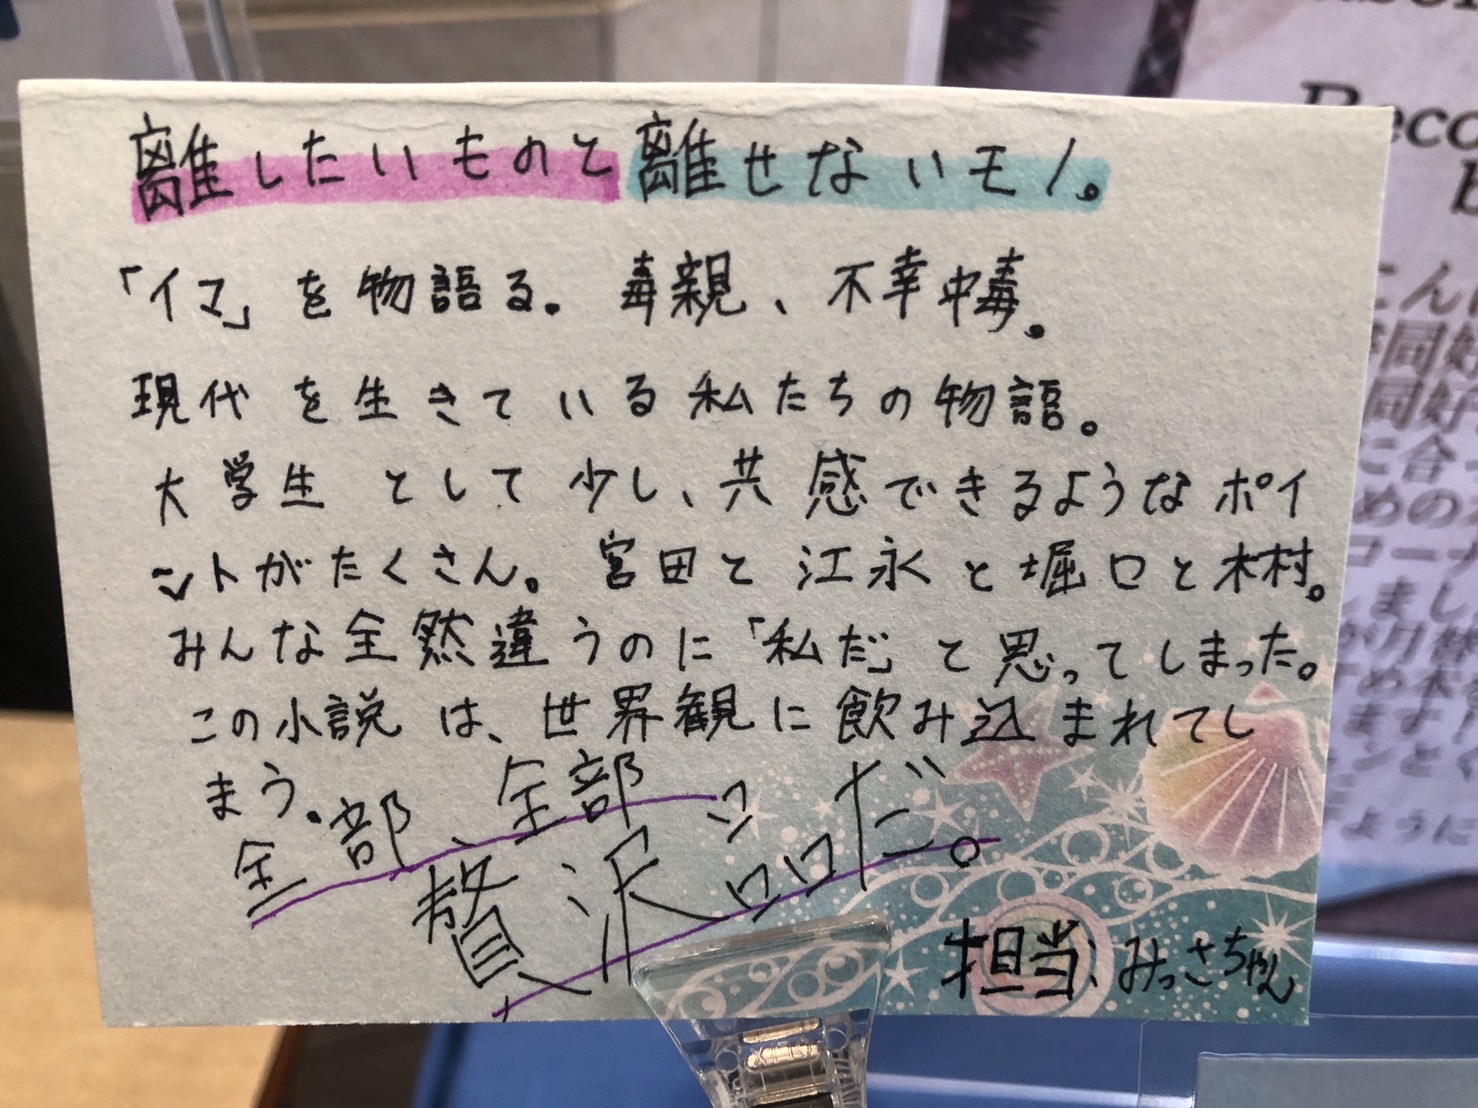 離したいものと離せないモノ。
「イマ」を物語る。毒親、不幸中毒。
現代を生きている私たちの物語。
大学生として少し、共感できるようなポイ
ントがたくさん。宮田と江永と堀口と木村。
みんな全然違うのに「私だ」と思ってしまった。
この小説は、世界観に飲み込まれてし
まう。
全部、全部
贅沢品だ。
担当:みっさちゃん
Reco
b
こんに
同好
同好
に合
めの
コーナ
まし
ように